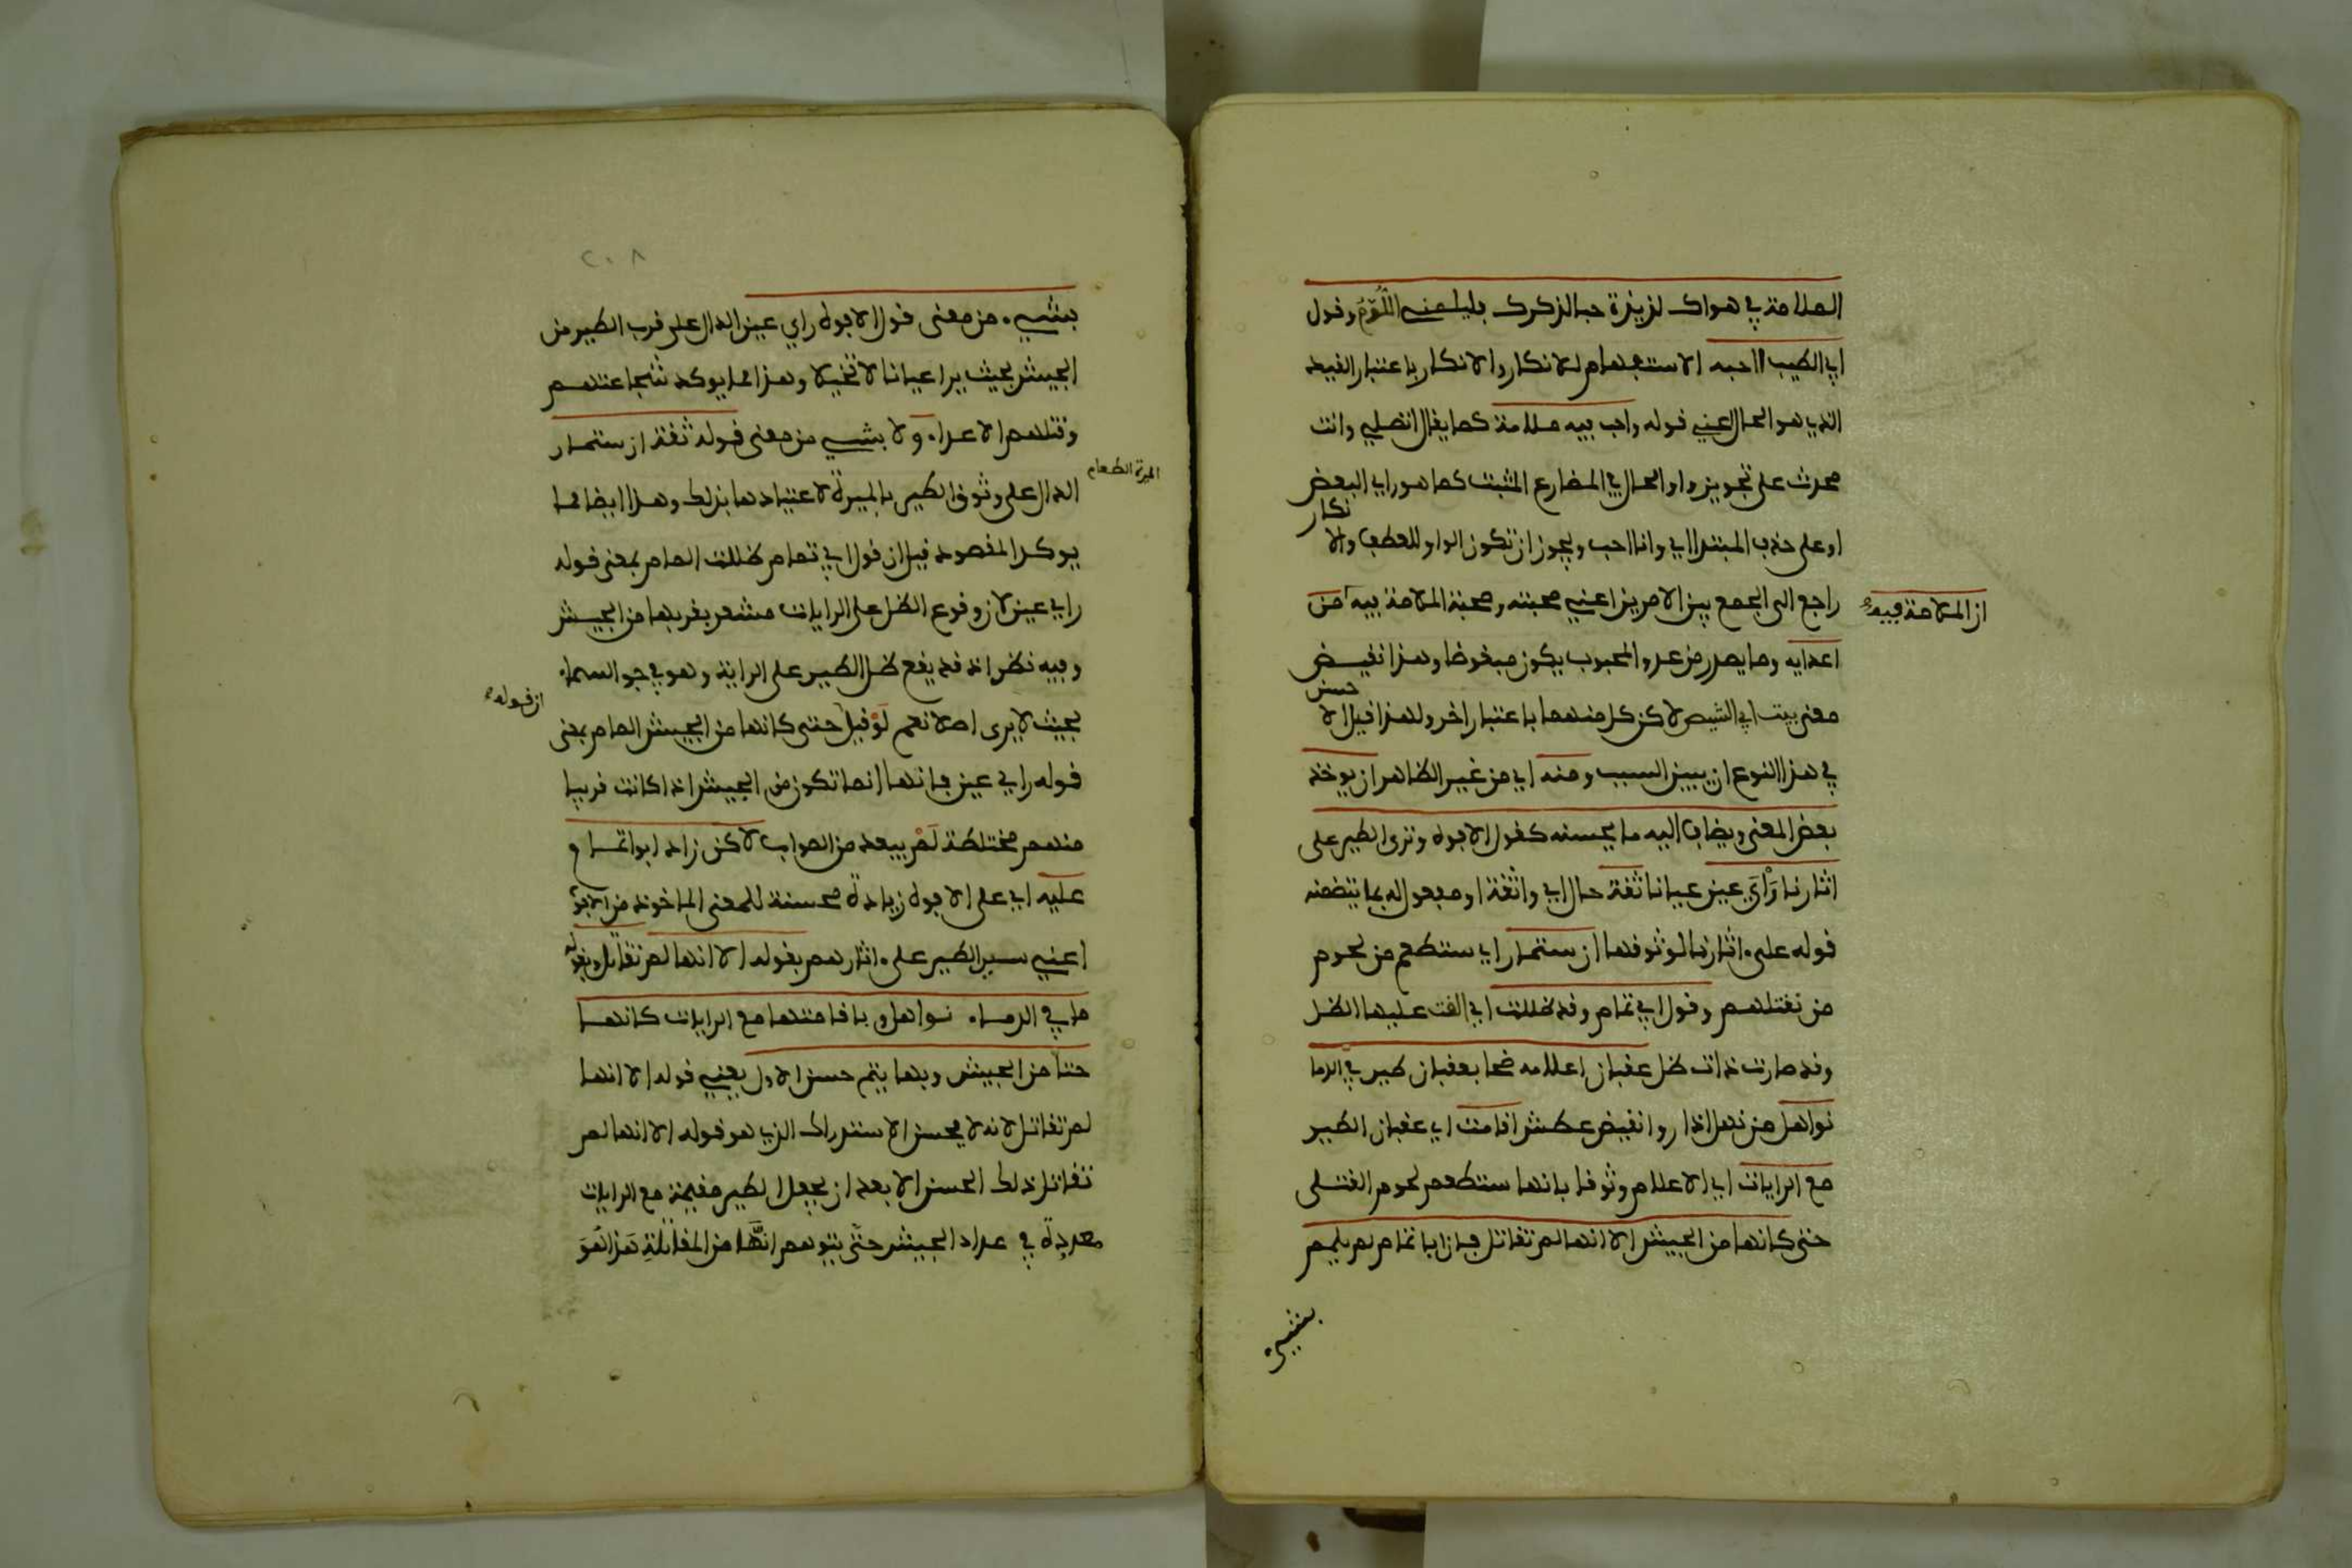 الملامة في هواك لذيذة حبا لذكرك فليلمني اللُّوَّمُ وقول
ابي الطيب ااحبه الاستفهام للانكار والانكار باعتبار القيد
الذي هو الحال اعني قوله واحب فيه ملامة كما يقال اتصلي وانت
محدث على تجويز واو الحال في المضارع المثبت كما هو راي البعض
او على حذف المبتدا اي وانا احب ويجوز ان تكون الواو للعطف والانكار
راجع الى الجمع بين الامرين اعني محبته ومحبة الملامة فيه من
ان الملامة فيه
اعدايه وما يصدر من عدو المحبوب يكون مبغوضا وهذا نقيض
معنى بيت ابي الشيص لاكن كل منهما باعتبار اخر ولهذا قيل الاحسن
في هذا النوع ان يبين السبب ومنه اي من غير الظاهر ان يوخذ
بعض المعنى ويضاف اليه ما يحسنه كقول الافوه وترى الطير على
اثارنا رَأْيَ عين عيانا ثقة حال اي واثقة او مفعول له بما يتضمنه
قوله على اثارنا لوثوقها ان ستمار اي ستطعم من لحوم
من نقتلهم وقول ابي تمام وقد ظللت اي القت عليها الظل
وقد صارت ذات ظل عقبان اعلامه ضحا بعقبان طير في الدما
نواهل من نهل اذا روا نقيض عطش اقامت اي عقبان الطير
مع الرايات اي الاعلام وثوقا بانها ستطعم لحوم القتلى
حتى كانها من الجيش الا انها لم تقاتل فان ابا تمام لم يلمم
بشيء
٢٠٨
بشيء من معنى قول الافوه راي عين الدال على قرب الطير من
الجيش بحيث يرا عيانا لا تخيلا وهذا مما يوكد شجاعتهم
وقتلهم الاعداء ولا بشيء من معنى قوله ثقة ان ستمار
الميرة الطعام
الدال على وثوق الطير بالميرة لاعتيادها بذلك وهذا ايضا مما
يوكد المقصود قيل ان قول ابي تمام ظللت المام بمعنى قوله
راي عين لان وقوع الظل على الرايات مشعر بقربها من الجيش
وفيه نظر اذ قد يقع ظل الطير على الراية وهو في جو السماء
بحيث لا يرى اصلا نعم لَوْ قيل حتى كانها من الجيش المام بمعنى
ان قوله
قوله راي عين فانها انما تكون من الجيش اذا كانت قريبا
منهم مختلطة لَمْ يبعد من الصواب لاكن زاد ابو تمام
عليه اي على الافوه زيادة محسنة للمعنى الماخوذ من الافوه
اعني سير الطير على اثارهم بقوله الا انها لم تقاتل وبقوله
ما في الدماء نواهل وباقامتها مع الرايات كانها
حتا من الجيش وبها يتم حسن الاول يعني قوله الا انها
لم تقاتل لانه لا يحسن الاستدراك الذي هو قوله الا انها لم
تقاتل ذلك الحسن الا بعد ان يجعل الطير مقيمة مع الرايات
معدودة في عداد الجيش حتى يتوهم انها من المقاتلة هذا هو